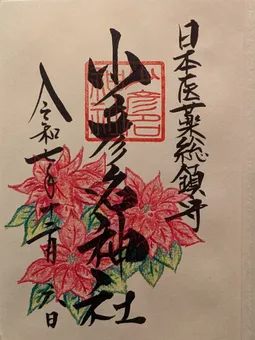 日本医薬総鎮守
少彦名神社
令和七年十二月
日